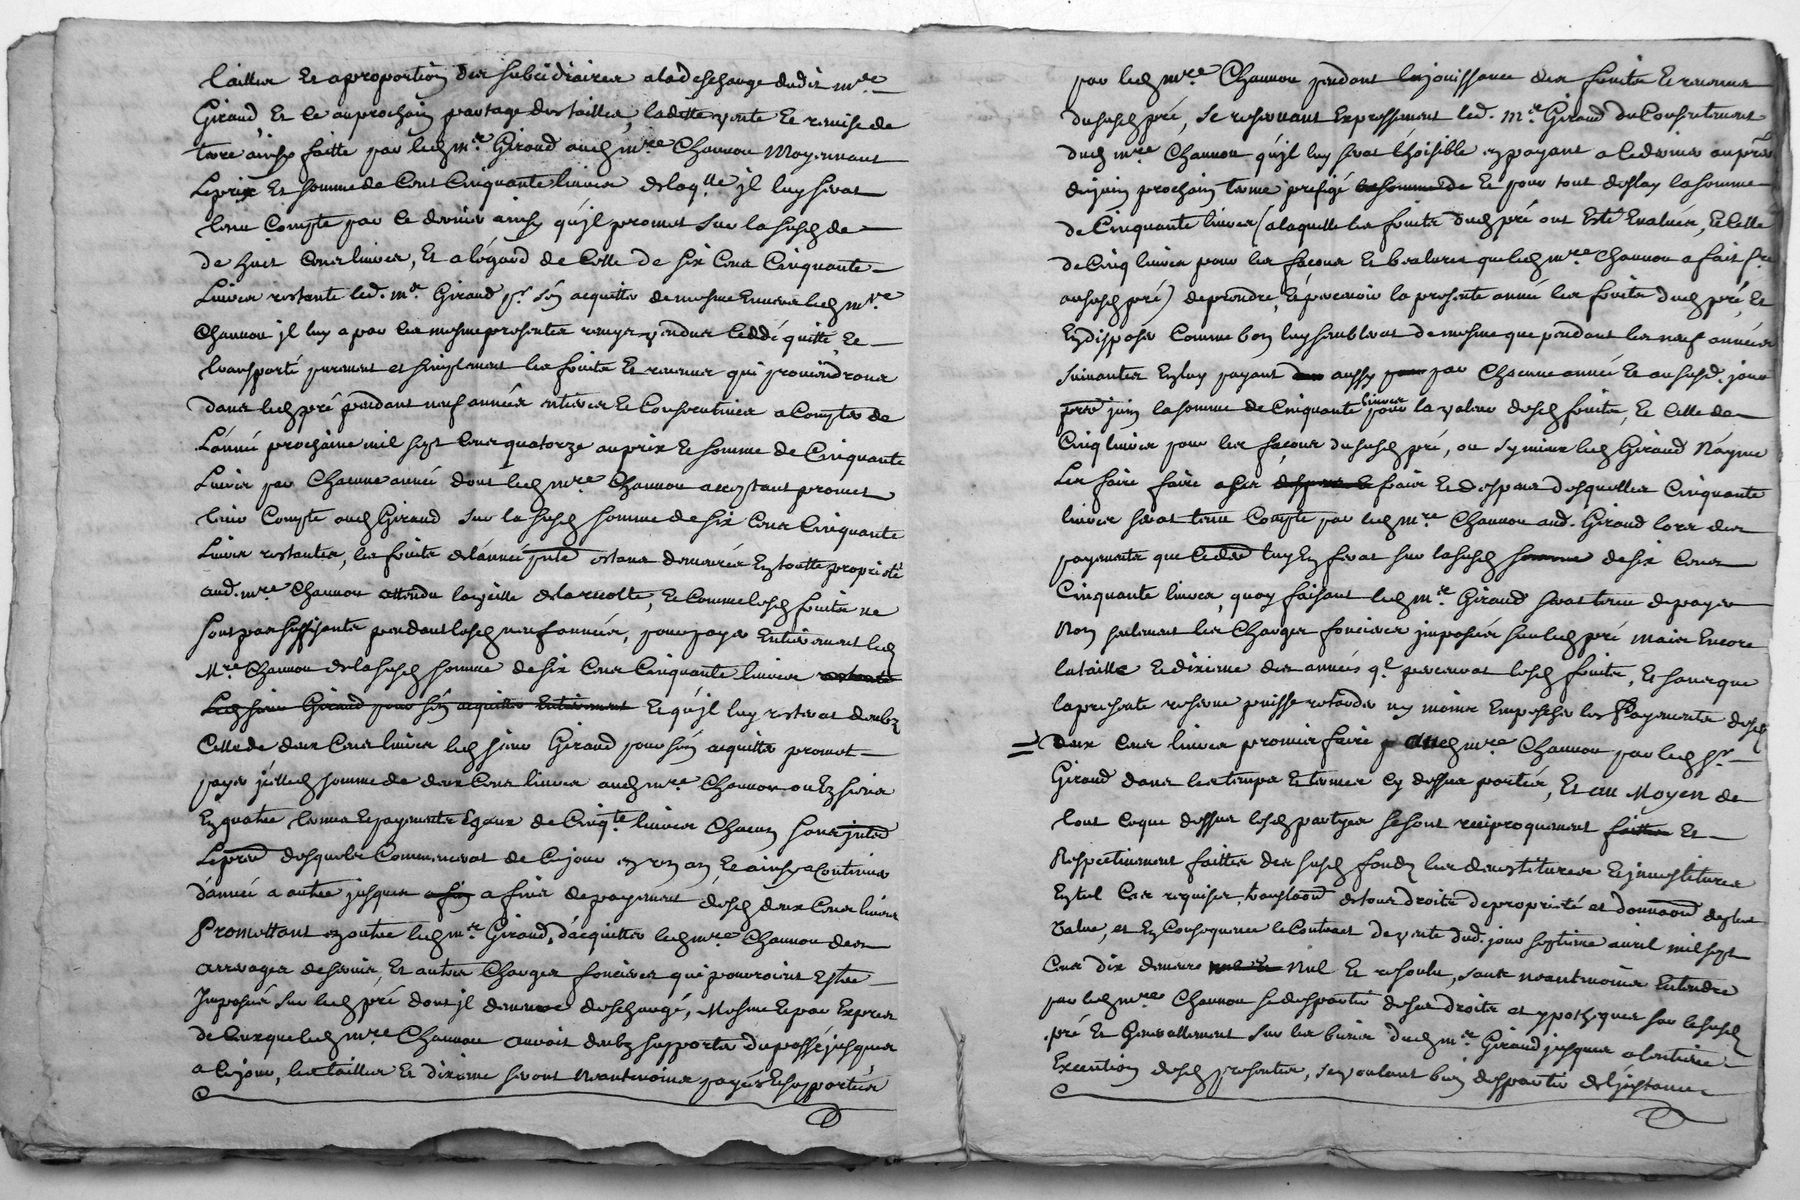 tailles et aproportion des subcidiaires aladescharge dudit mre
Giraud, et ce auprochain partage des tailles, ladette vente et remise de
terre ainsy faitte par led mre Giraud aud mre Channou Moyennant
Leprix et somme de Cent Cinquante livres delaqlle jl luy serat
tenu Compte par ce dernier ainsy qu'jl promet sur la susd de
de huit Cens livres, Et a l'égard de Celle de six Cens Cinquante
Livres restante led. mre Giraud pr s'en acquitter de mesme Envers led mre
Channou jl luy a par les mesme presentes remys vendus Ceddé quitté, et
transporté purement et simplement les fruits Et revenus qui proviendrons
dans led pré pendant neuf années entieres Et Consecutives a Compter de
L'année prochaine mil sept Cens quatorze au prix Et somme de Cinquante
Livres par Chacune année dont led mre Channou acceptant promet
tenir Compte aud Giraud sur la susd somme de six Cens Cinquante
Livres restantes, les fruits del'année pnte estans demeurés En toutte propriété
aud. mre Channou attendu la veille dela recolte, et Comme lesd fruits ne
sont pas suffisants pendant lesd neuf années, pour payer Entierement led
Mre Channou dela susd somme de six Cens Cinquante livres restante
Led sieur Giraud pour s'en acquitter Entierement Et qu'jl luy resterat deubz
Celle de deux Cens livres led sieur Giraud pour s'en acquitter promet
payer jcelle somme de deux Cens livres aud mre Channou ou Ez siens
En quatre termes Et payments Egaux de Cinqte livres Chacun sans jnterd
Lepred desquels Commencerat de Ce jour en un an, Et ainsy a Continuer
d'année a autre jusques a fin a fin de payement desd deux Cens livres
Promettant en outre led mre Giraud, d'acquitter led mre Channou des
arrerages de servis, Et autres Charges foncieres qui pourroient Estre
Imposés sur led pré dont jl demeure deschargé, Mesme Et par Exprés
de Ceux que led mre Channou auroit deubz supporter du passé jusques
a Ce jour, les tailles Et dixieme seront Neantmoins payés Et supportés
par led mre Channou pendant la jouissance des fruits Et revenus
du susd pré, se reservant Expressement led. Mre Giraud du Consentement
dud mre Channou qu'jl luy serat Choisible en payant a Ce dernier au prer
de juin prochain terme prefigé la somme de Et pour tout deslay la somme
de Cinquante livres (a laquelle les fruits dud pré ont Esté Evalués, Et Celle
de Cinq livres pour les façons Et balures que led mre Channou a fait fre
au susd pré) de prendre, Et percevoir la presente année les fruits dud pré, Et
En disposer Comme bon luy semblerat de mesme que pendant les neuf années
suivantes En luy payant aussy par Chacune année Et au susd. jour
prer juin la somme de Cinquante livres pour la valeur desd fruits, Et Celle de
Cinq livres pour les façons du susd pré, ou sy mieux led Giraud N'ayme
Les faire faire a ses despens Et frais Et despens desquelles Cinquante
livres serat tenu Compte par led mre Channou aud. Giraud lors des
payements que Ced luy En ferat sur la susd somme de six Cens
Cinquante livres, quoy faisant led mre Giraud serat tenu de payer
Non seulement les Charges foncieres jmposées sur led pré mais Encore
la taille Et dixieme des années ql percevrat lesd fruits, Et sans que
la presente reserve puisse retarder ny moins Empescher les Payements desd
= deux Cens livres promis faire aud mre Channou par led Sr
Giraud dans les temps Et termes Cy dessus portés, Et au Moyen de
tout Ce que dessus lesd partyes se sont reciproquement faittes Et
Respectivement faittes des susd fonds les devestitures Et jnvestitures
En tel Cas requises, translaon de tous droits de propriété et donnaon de plus
value, et En Consequence le Contract de vente dud. jour septieme avril mil sept
Cens dix demeure nul et Nul Et resoulu, sans neantmoins Entendre
par led mre Channou se despartir de ses droits et ypotheques sur le susd
pré Et Generallement sur les biens dud mre Giraud jusques a l'entiere
Execution desd presentes, se voulant bien despartir del'jnstance